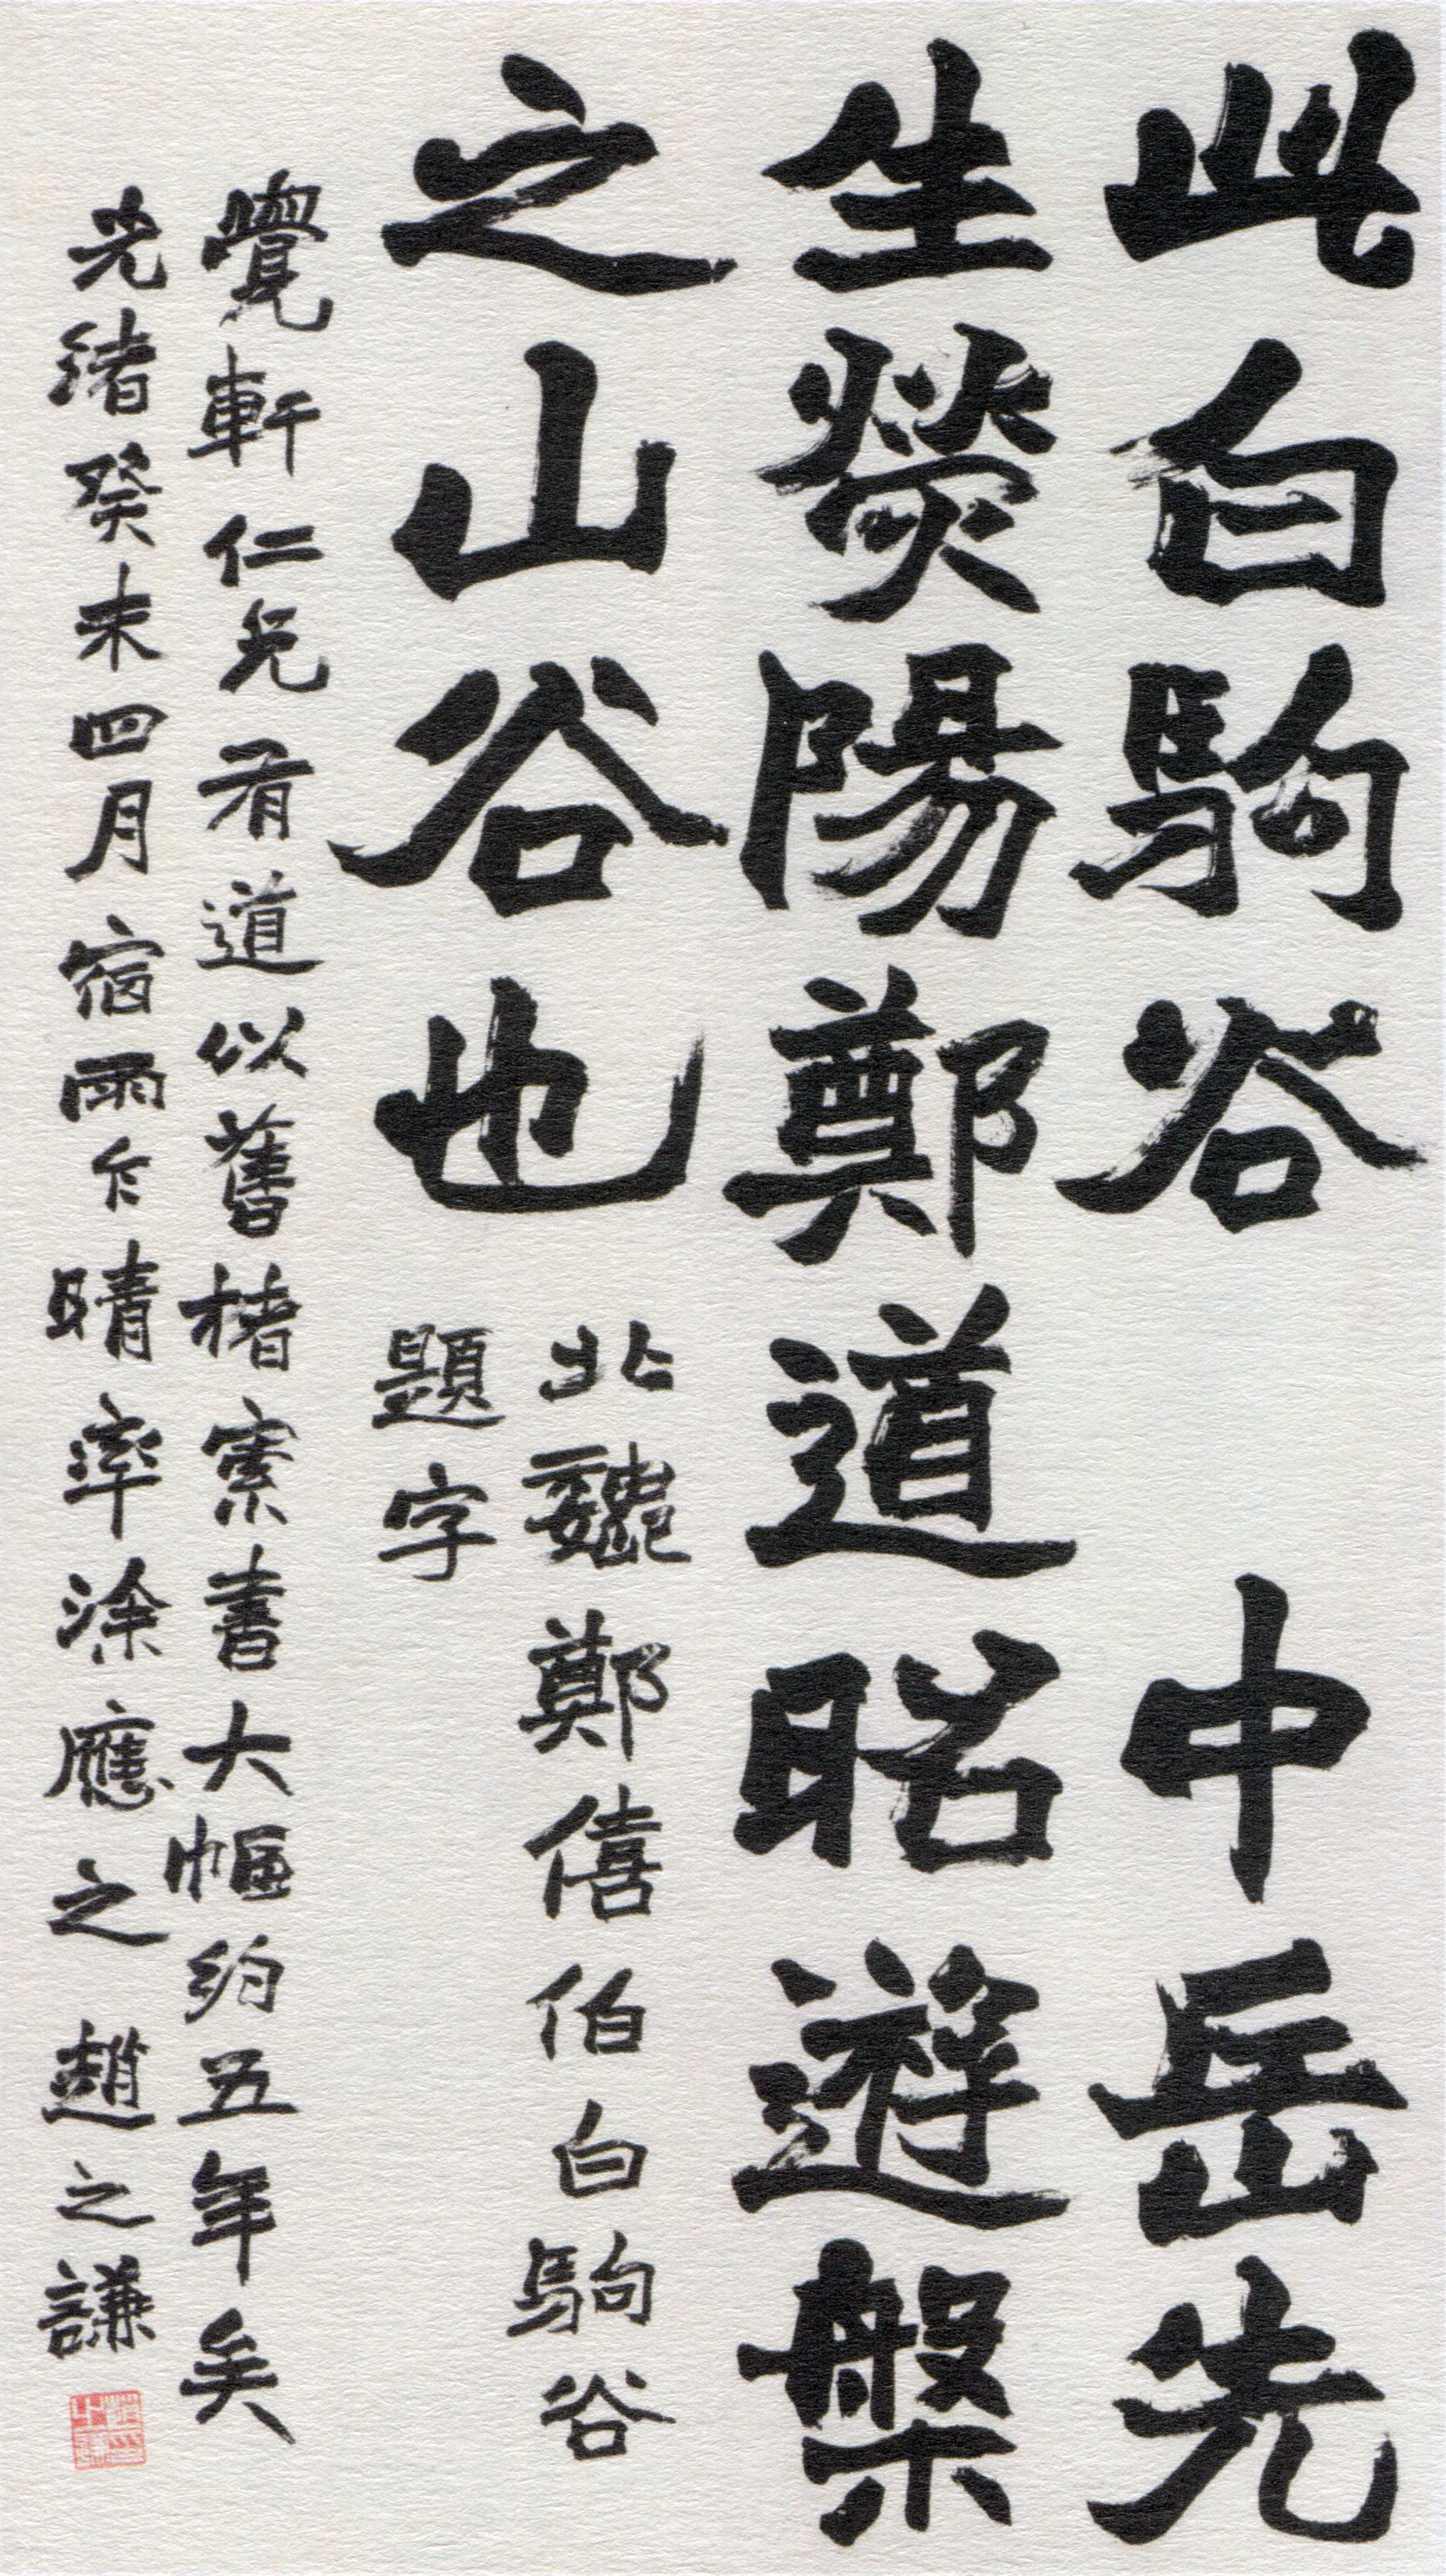 此白駒谷 中岳先
生熒陽鄭道昭遊槃
之山谷也
北魏鄭僖伯白駒谷
題字
覺軒仁兄有道以舊楮索書大幅約五年矣
光緒癸未四月宿雨乍晴率涂應之 趙之謙